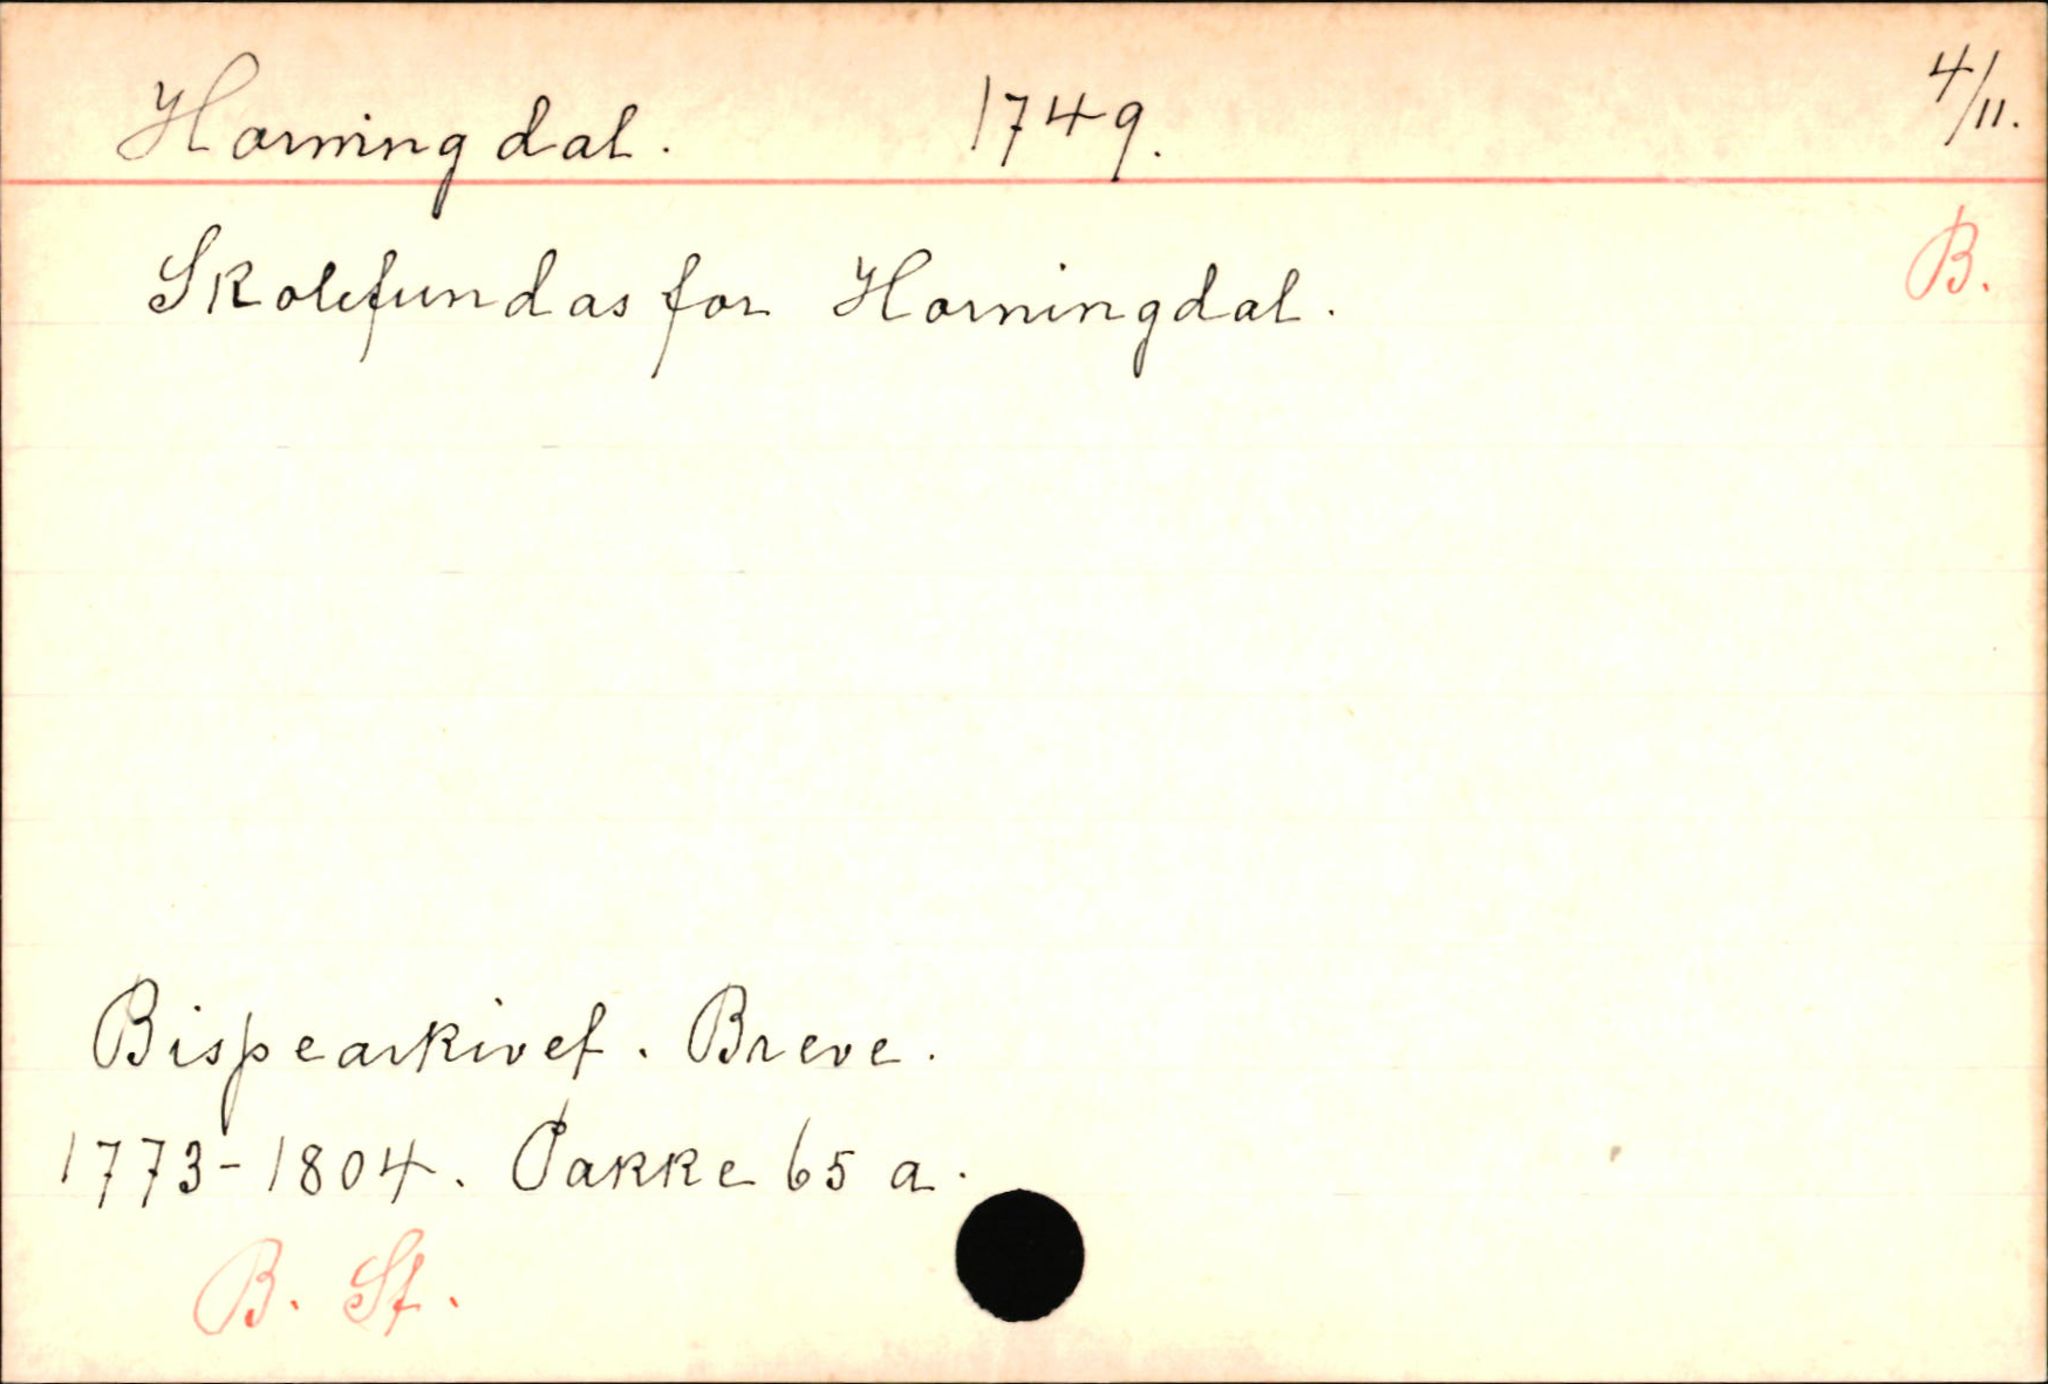 Horningdal. 1749. 4/11.
B.
Skolefundas for Horningdal.
Bispearkivet. Breve.
1773-1804. Pakke 65 a.
B. St.